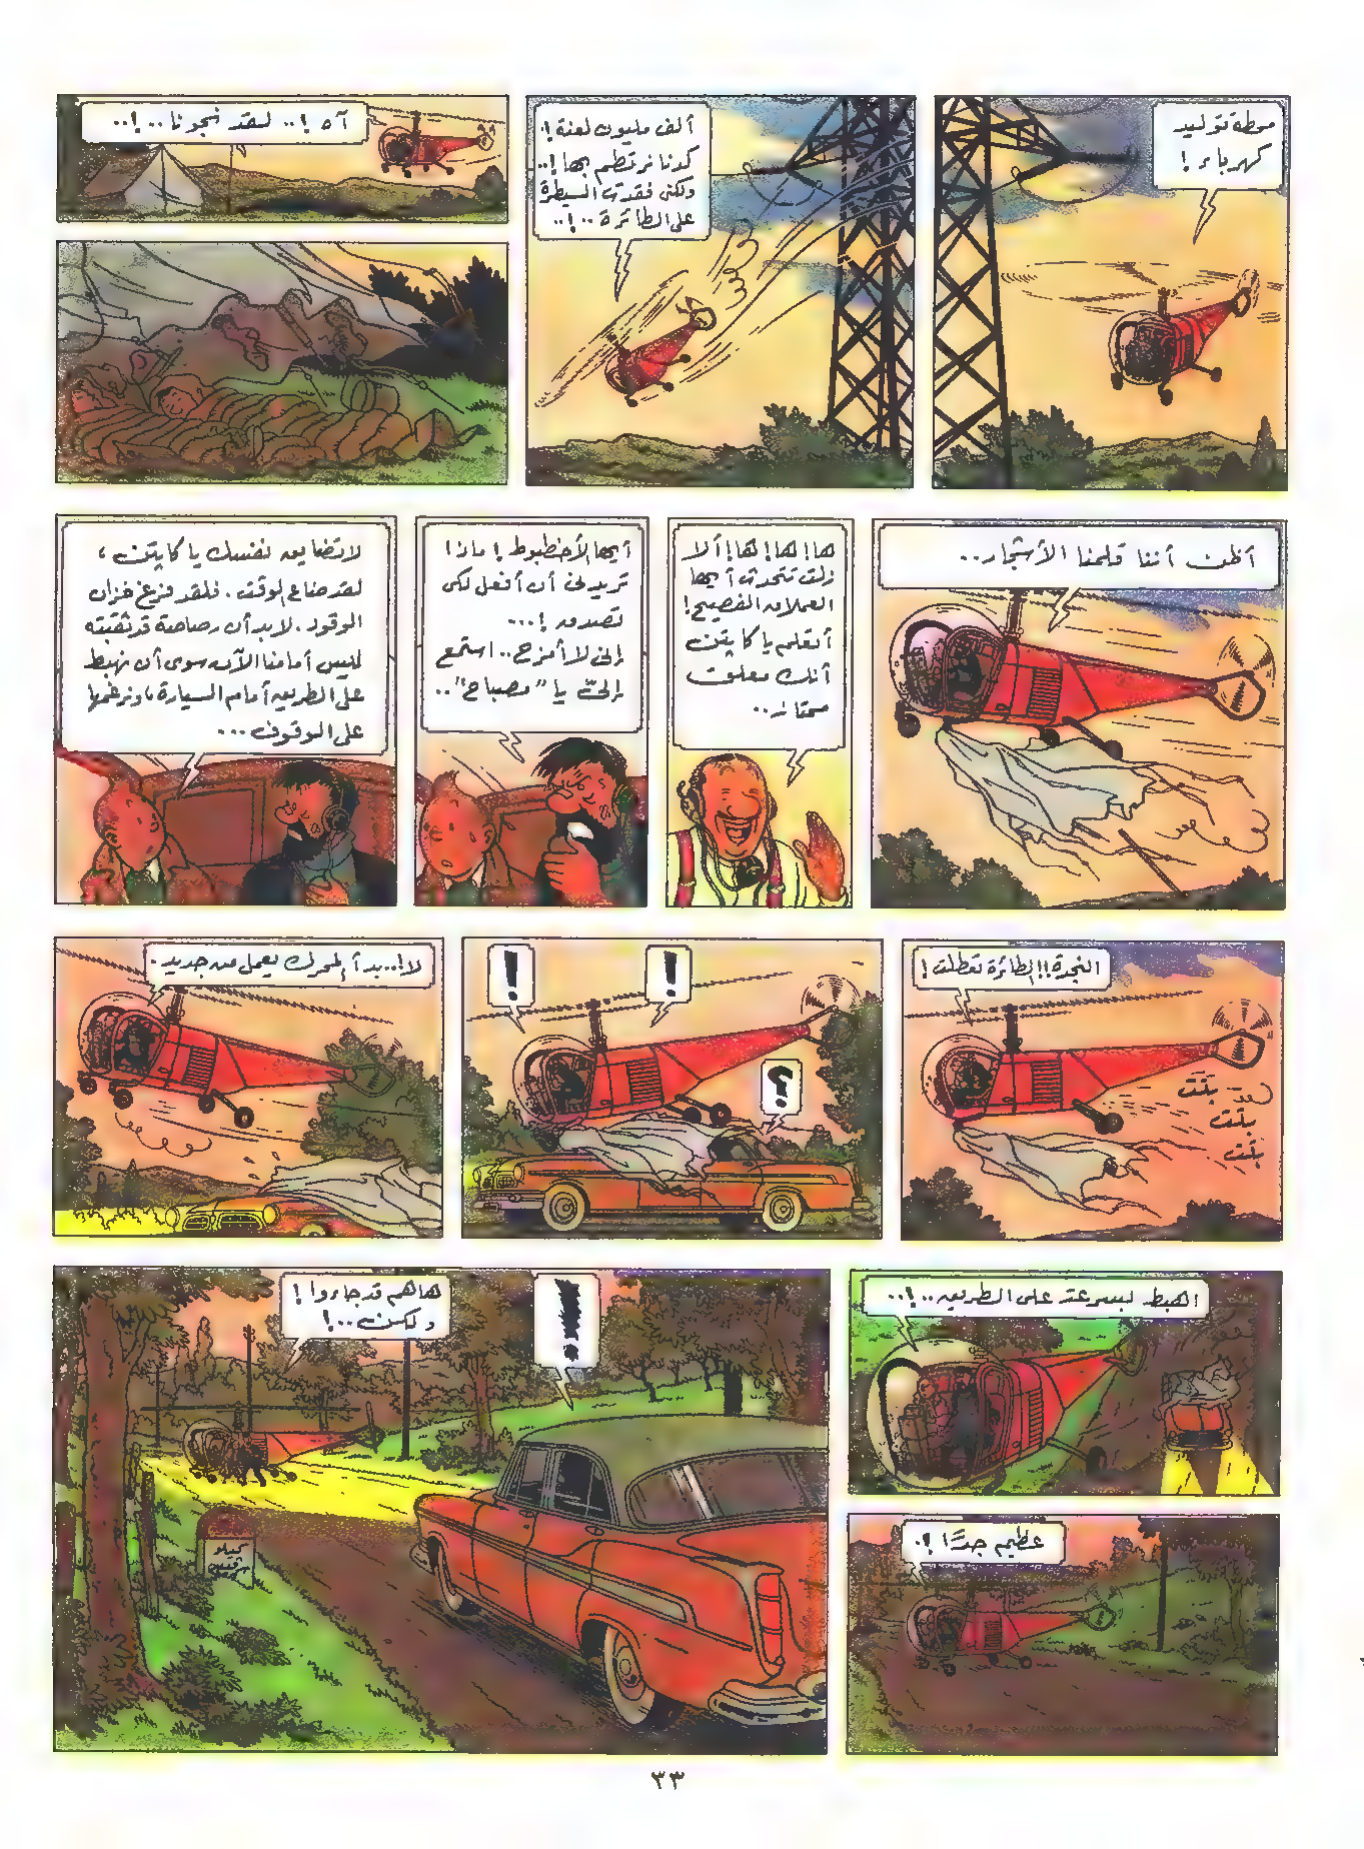 محطة توليد
كهرباء !
ألف مليون لعنة !.
كدنا نرتطم بها !..
ولكن فقدت السيطرة
على الطائرة ..!..
آه !.. لقد نجونا ..!..
أظن أننا قلمنا الأشجار ..
ها! ها! ها! ألا
زلت تتحدث أيها
العملاق الفصيح !
أتعلم يا كابتن
أنك معلق
ممتاز ..
أيها الأخطبوط ! ماذا
تريدني أن أفعل لكي
تصدق !...
إني لا أمزح .. استمع
إليّ يا "مصباح" ..
لا تضايق نفسك يا كابتن ،
لقد ضاع الوقت . فلقد فرغ خزان
الوقود . لابد أن رصاصة قد ثقبته
ليس أمامنا الآن سوى أن نهبط
على الطريق أمام السيارة ، ونرغمها
على الوقوف ...
النجدة !! الطائرة تعطلت !
بلت
بلت
بلت
!
!
؟
لا !.. بدأ المحرك يعمل من جديد .
اهبط بسرعة على الطريق ..!..
عظيم جدًا !.
هاهم قد جاءوا !
ولكن ..!
!
كيلو
٣٣